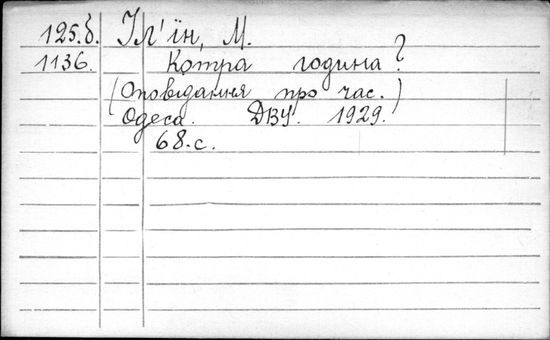 125.б. Іл'їн, М.
1136. Котра година?
(Оповідання про час.)
Одеса. ДВУ. 1929.
68.с.